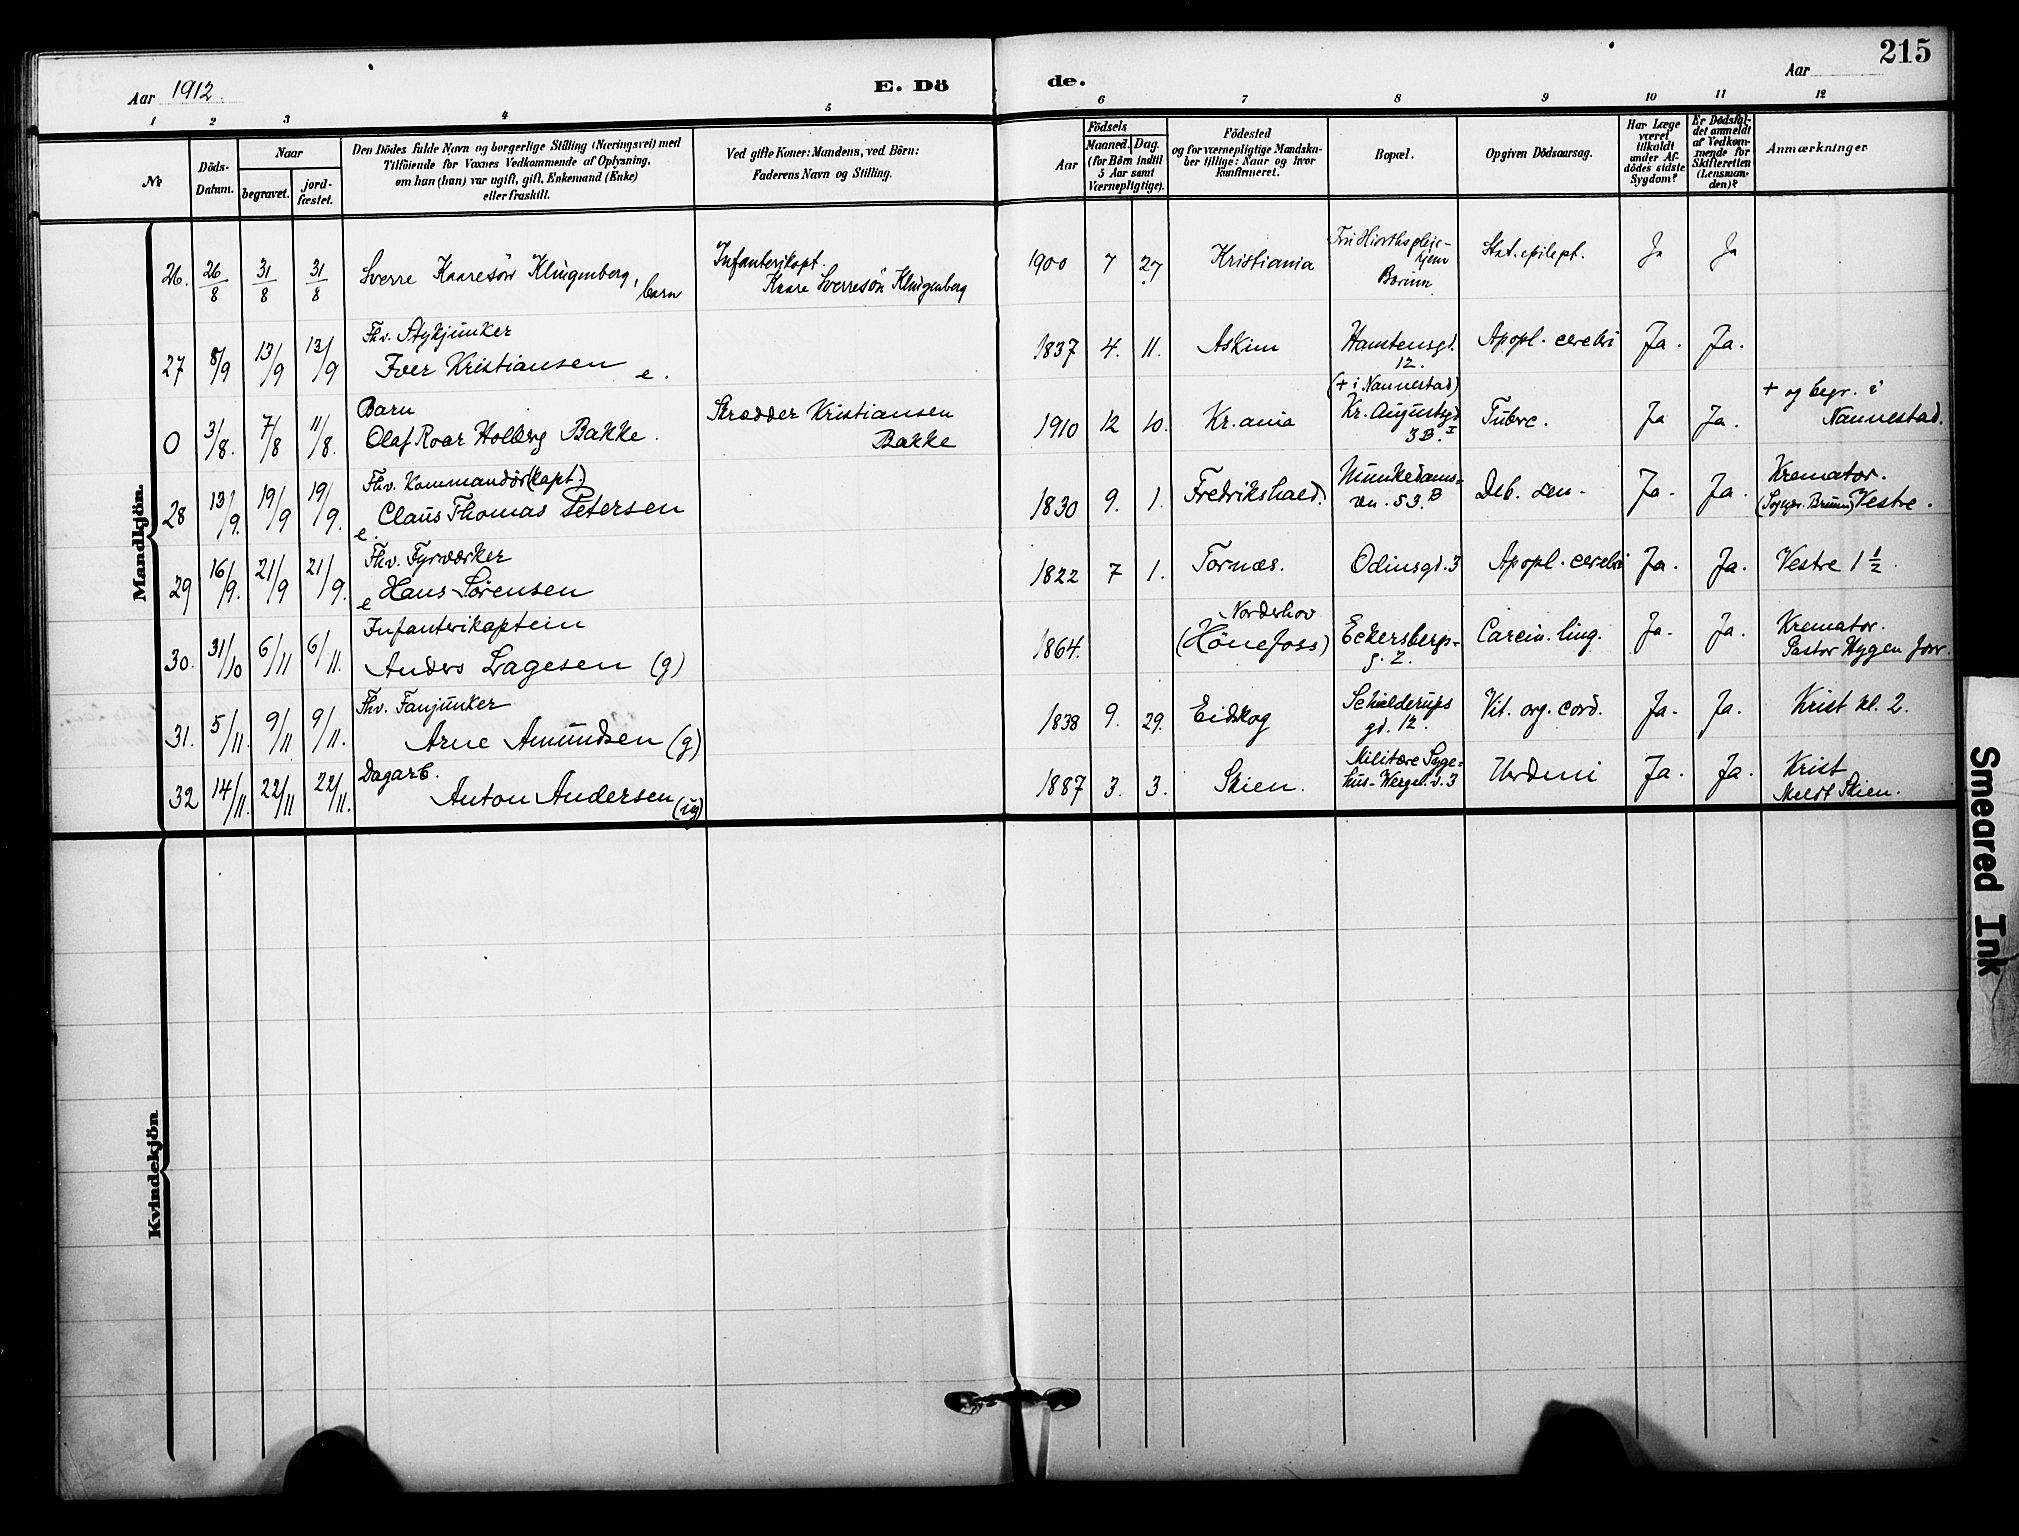 215
Aar 1912.
E. Dö de.
Aar
1 2 3 4 5 6 7 8 9 10 11 12
№
Döds-
Datum.
Naar
begravet.
jord-
fæstet.
Den Dödes fulde Navn og borgerlige Stilling (Næringsvei) med
Tilföiende for Voxnes Vedkommende af Oplysning,
om han (hun) var ugift, gift, Enkemand (Enke)
eller fraskilt.
Ved gifte Koner: Mandens, ved Börn:
Faderens Navn og Stilling.
Födsels
Aar
Maaned.
Dag.
(for Börn indtil
5 Aar samt
Værnepligtige).
Födested
og for værnepligtige Mandska-
ber tillige: Naar og hvor
konfirmeret.
Bopæl.
Opgiven Dödsaarsag.
Har Læge
været
tilkaldt
under Af-
dödes sidste
Sygdom?
Er Dödsfal-
det anmeldt
af Vedkom-
mende for
Skifteretten
(Lensman-
den)?
Anmærkninger
Mandkjön.
26. 26/8 31/8 31/8 Sverre Kaaresön Klingenberg, barn
Infanterikapt.
Kaare Sverresön Klingenberg
1900 7 27. Kristiania
Bærum
Stat. epilept. Ja Ja
27 8/9 13/9 13/9 Fhv. Stykjunker
Iver Kristiansen e.
1837 4. 11. Askim
12.
Apopl. cerebri Ja. Ja.
0 31/8. 7/8 11/8. Barn
Olaf Roar Holberg Bakke.
Skrædder Kristiansen
Bakke
1910 12 10. Kr.ania
(+ i Nannestad)
Kr. Augustsgd
3B. I
Tuberc. Ja Ja.
+ og begr. i
Nannestad.
28 13/9. 19/9 19/9. Fhv. Kommandör(kapt.)
e. Claus Thomas Petersen
1830 9. 1. Fredrikshald.
Munkedams-
vn. 53.B
Deb. sen. Ja. Ja.
Kremator.
(Sognpr. Bruun) Vestre.
29 16/9. 21/9 21/9. Fhv. Fyrværker
e Hans Sörensen
1822 7 1. Tornæs. Odinsgd. 3 Apopl. cerebri Ja. Ja. Vestre 1 1/2.
30. 31/10 6/11 6/11. Infanterikaptein
Anders Lagesen (g)
1864.
Norderhov
(Hönefoss)
Eckersbergs-
g. 2.
Carcin. ling. Ja. Ja.
Kremator.
Pastor Hygen forr.
31. 5/11. 9/11 9/11. Fhv. Fanjunker
Arne Amundsen (g)
1838 9. 29. Eidskog
Schulderups
gd. 12.
Vit. org. cord. Ja. Ja. Krist kl. 2.
32 14/11. 22/11 22/11. Dagarb.
Anton Andersen (ug)
1887 3. 3. Skien.
Militære Syge-
hus- Wergel. v. 3
Ja. Ja.
Krist
Meldt Skien.
Kvindekjön
Smeared Ink